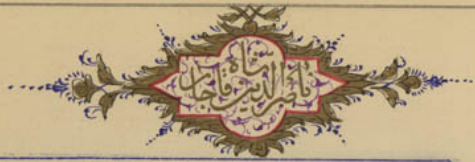 ناصرالدین شاه قاجار